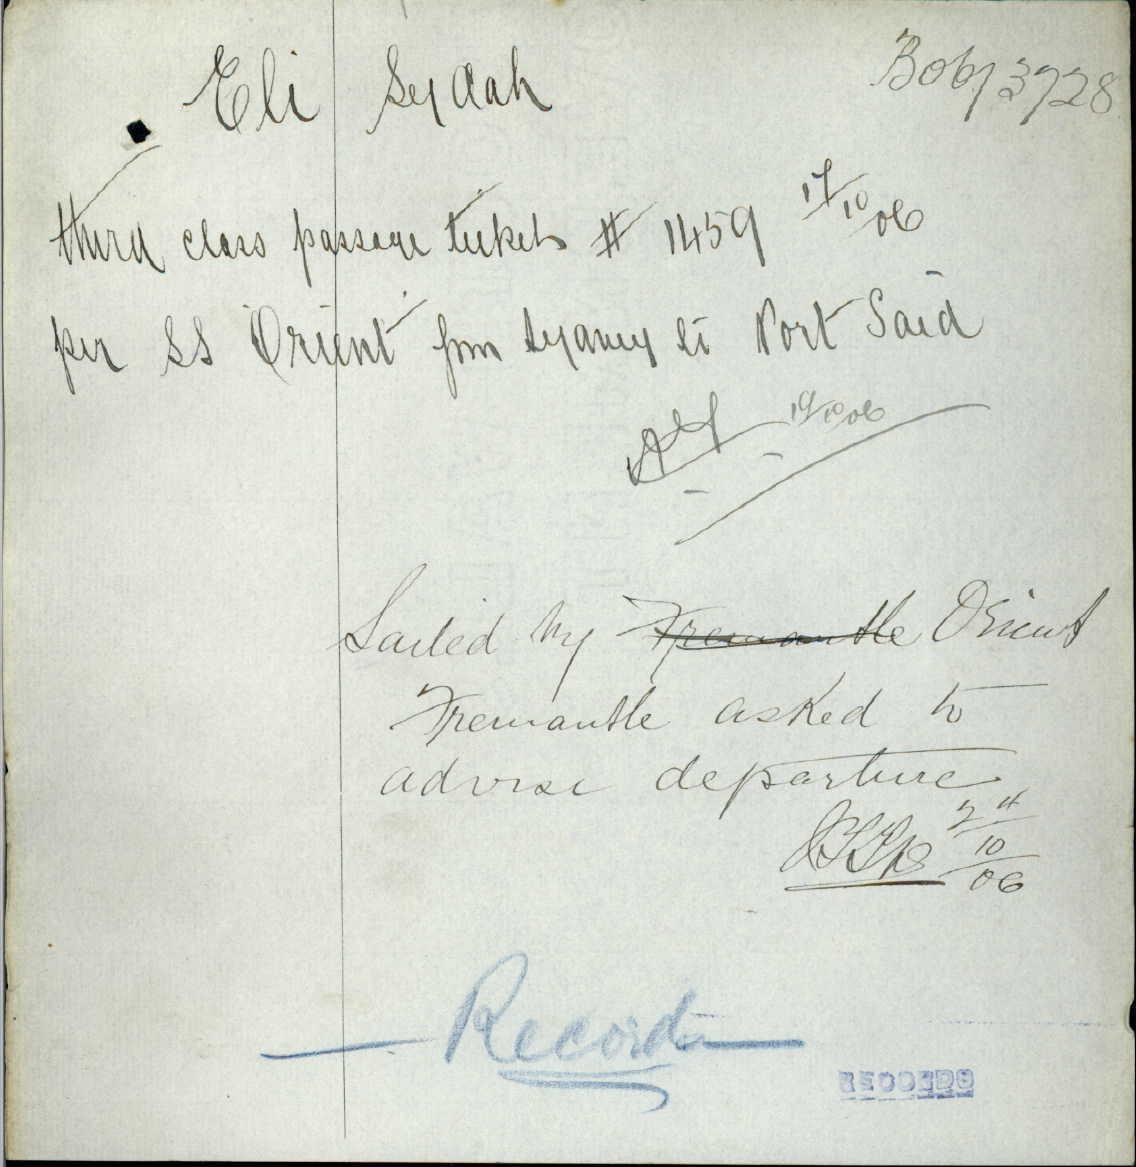 06/3728
Eli Sydah
third class passage ticket # 1459 17/10/06
per SS "Orient" from Sydney to Port Said
19/10/06
Sailed by Fremantle Orient
Fremantle asked to
advise departure
24/10/06
Records
RECORDS